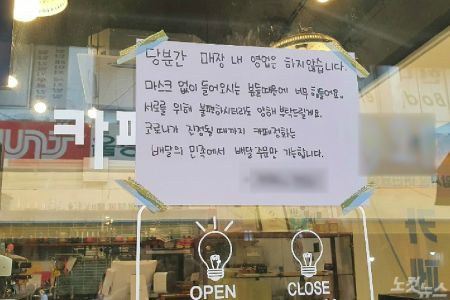 당분간 매장 내 영업은 하지않습니다.
마스크 없이 들어오시는 분들때문에 너무 힘들어요.
서로를 위해 불편하시더라도 양해 부탁드릴게요.
코로나가 진정될 때까지 카페전하는
배달의 민족에서 배달 주문만 가능합니다.
카페
OPEN
CLOSE
노컷뉴스